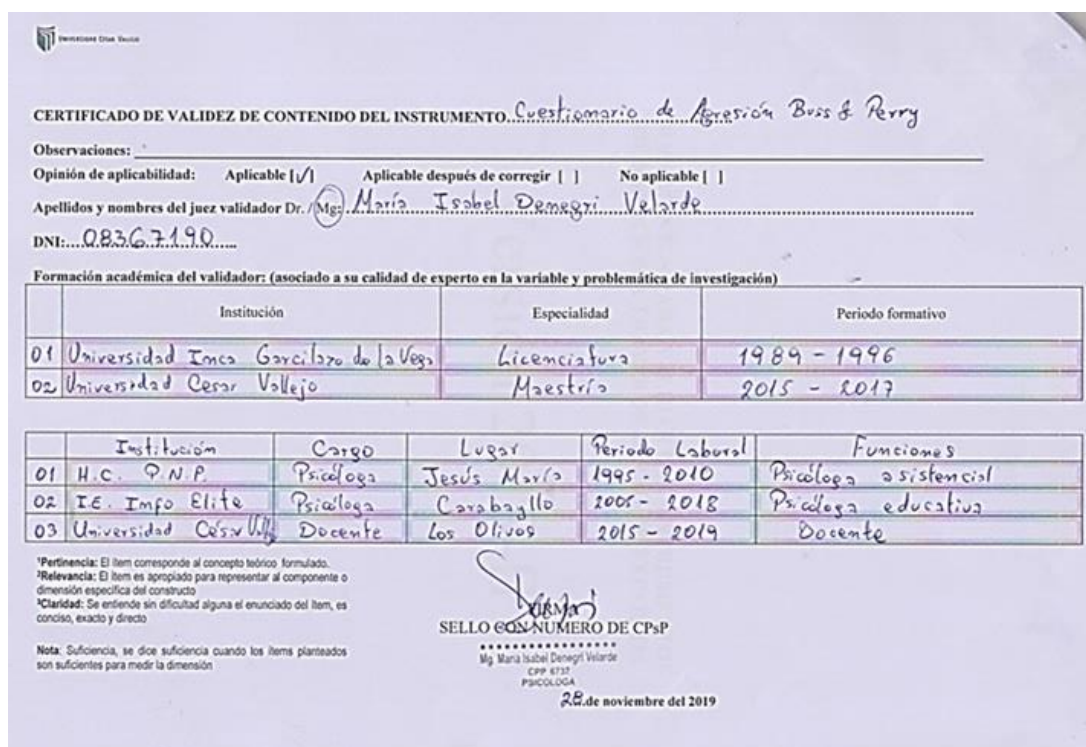 UNIVERSIDAD CÉSAR VALLEJO
CERTIFICADO DE VALIDEZ DE CONTENIDO DEL INSTRUMENTO. Cuestionario de Agresión Buss & Perry
Observaciones:
Opinión de aplicabilidad: Aplicable [√] Aplicable después de corregir [ ] No aplicable [ ]
Apellidos y nombres del juez validador Dr. / Mg: María Isabel Denegri Velarde
DNI:...08367190.....
Formación académica del validador: (asociado a su calidad de experto en la variable y problemática de investigación)
Institución Especialidad Periodo formativo
01 Universidad Inca Garcilazo de la Vega Licenciatura 1989 - 1996
02 Universidad Cesar Vallejo Maestría 2015 - 2017
Institución Cargo Lugar Periodo Laboral Funciones
01 H.C. P.N.P. Psicóloga Jesús María 1995 - 2010 Psicóloga asistencial
02 I.E. Info Elite Psicóloga Carabayllo - 2018 Psicóloga educativa
03 Universidad César Docente Los Olivos 2015 - 2019 Docente
¹Pertinencia: El ítem corresponde al concepto teórico formulado.
²Relevancia: El ítem es apropiado para representar al componente o
dimensión específica del constructo
³Claridad: Se entiende sin dificultad alguna el enunciado del ítem, es
conciso, exacto y directo
Nota: Suficiencia, se dice suficiencia cuando los ítems planteados
son suficientes para medir la dimensión
FIRMA
SELLO CON NUMERO DE CPsP
Mg. María Isabel Denegri Velarde
CPP 6737
PSICOLOGA
28.de noviembre del 2019